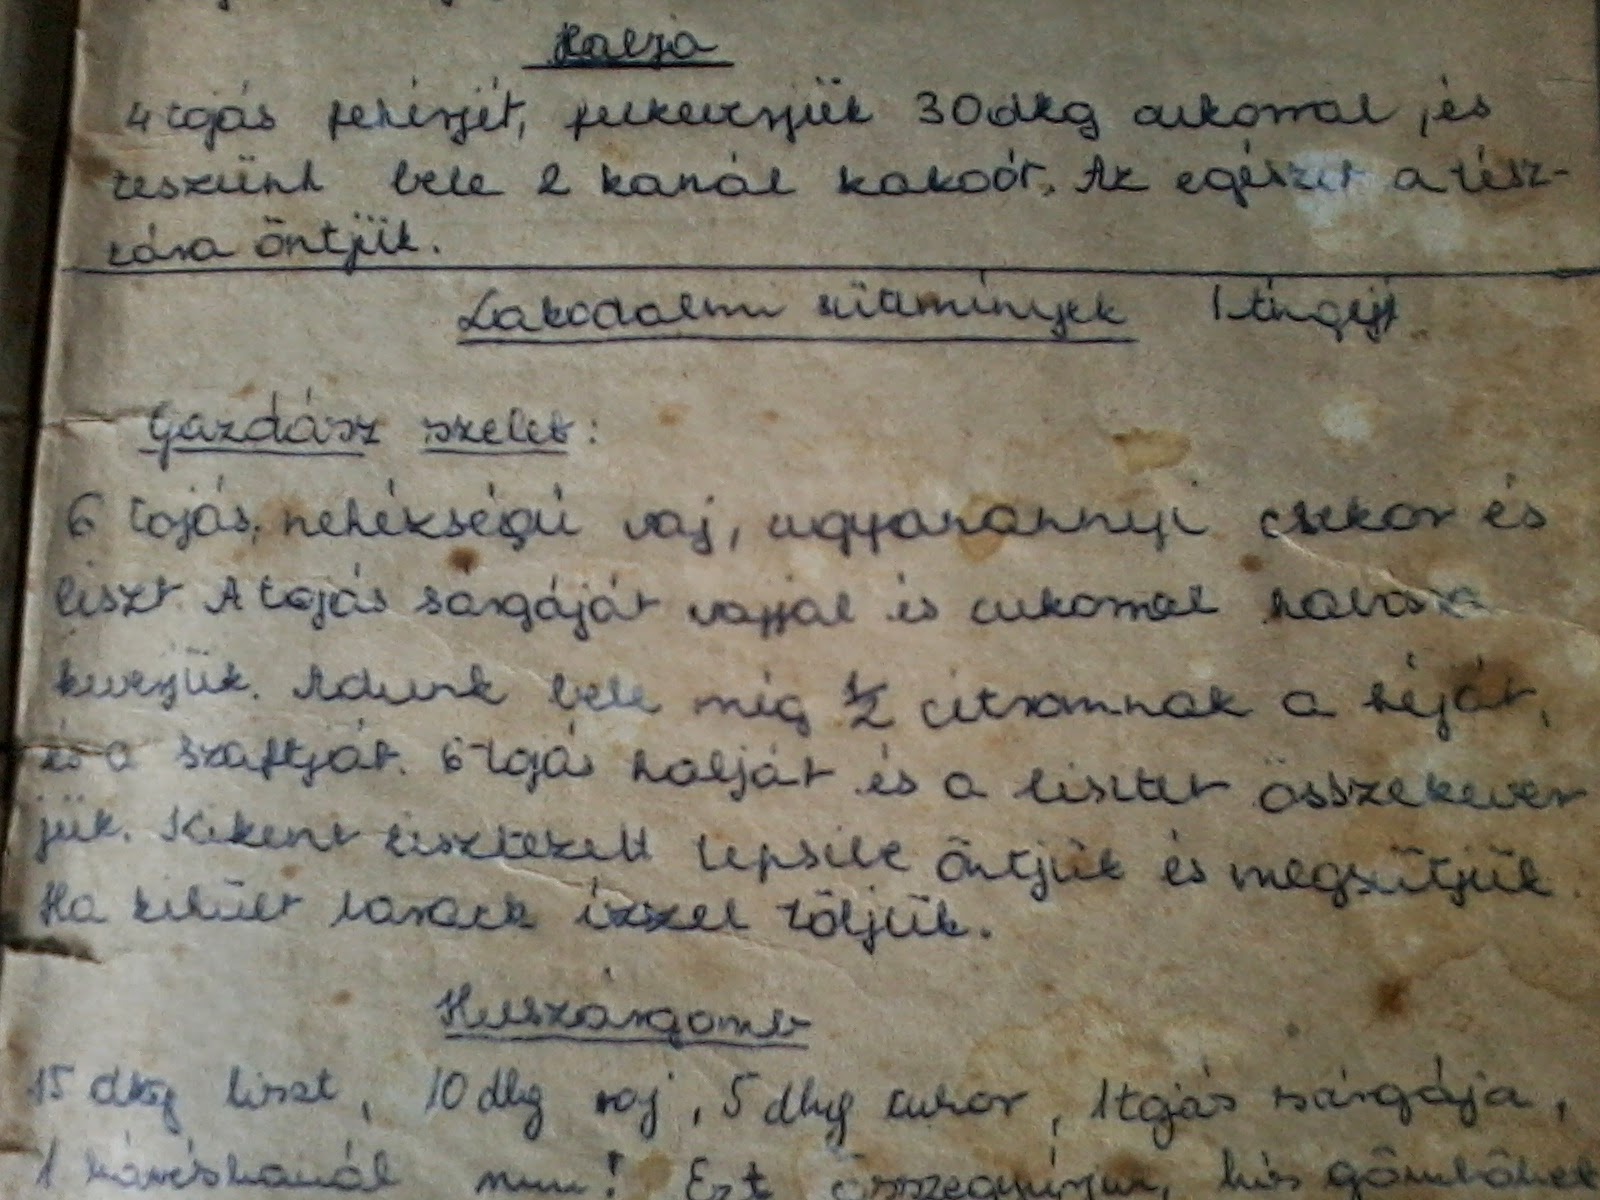 Habja
4 tojás fehérjét, felkeverjük 30 dkg cukorral, és
teszünk bele 2 kanál kakaót. Az egészet a tész-
tára öntjük.
Lakodalmi sütemények
Gazdász szelet:
6 tojás, nehékségű vaj, ugyanannyi cukor és
liszt. A tojás sárgáját vajjal és cukorral habosra
keverjük. Adunk bele még 1/2 citromnak a héját,
és a szaftját. 6 tojás habját és a lisztet összekever
jük. Kikent lisztezett tepsibe öntjük és megsütjük.
Ha kihült barack ízzel töltjük.
Huszárgomb
15 dkg liszt, 10 dkg vaj, 5 dkg cukor, 1 tojás sárgája,
1 kávéskanál rum! Ezt összegyúrjuk, kis gömböket